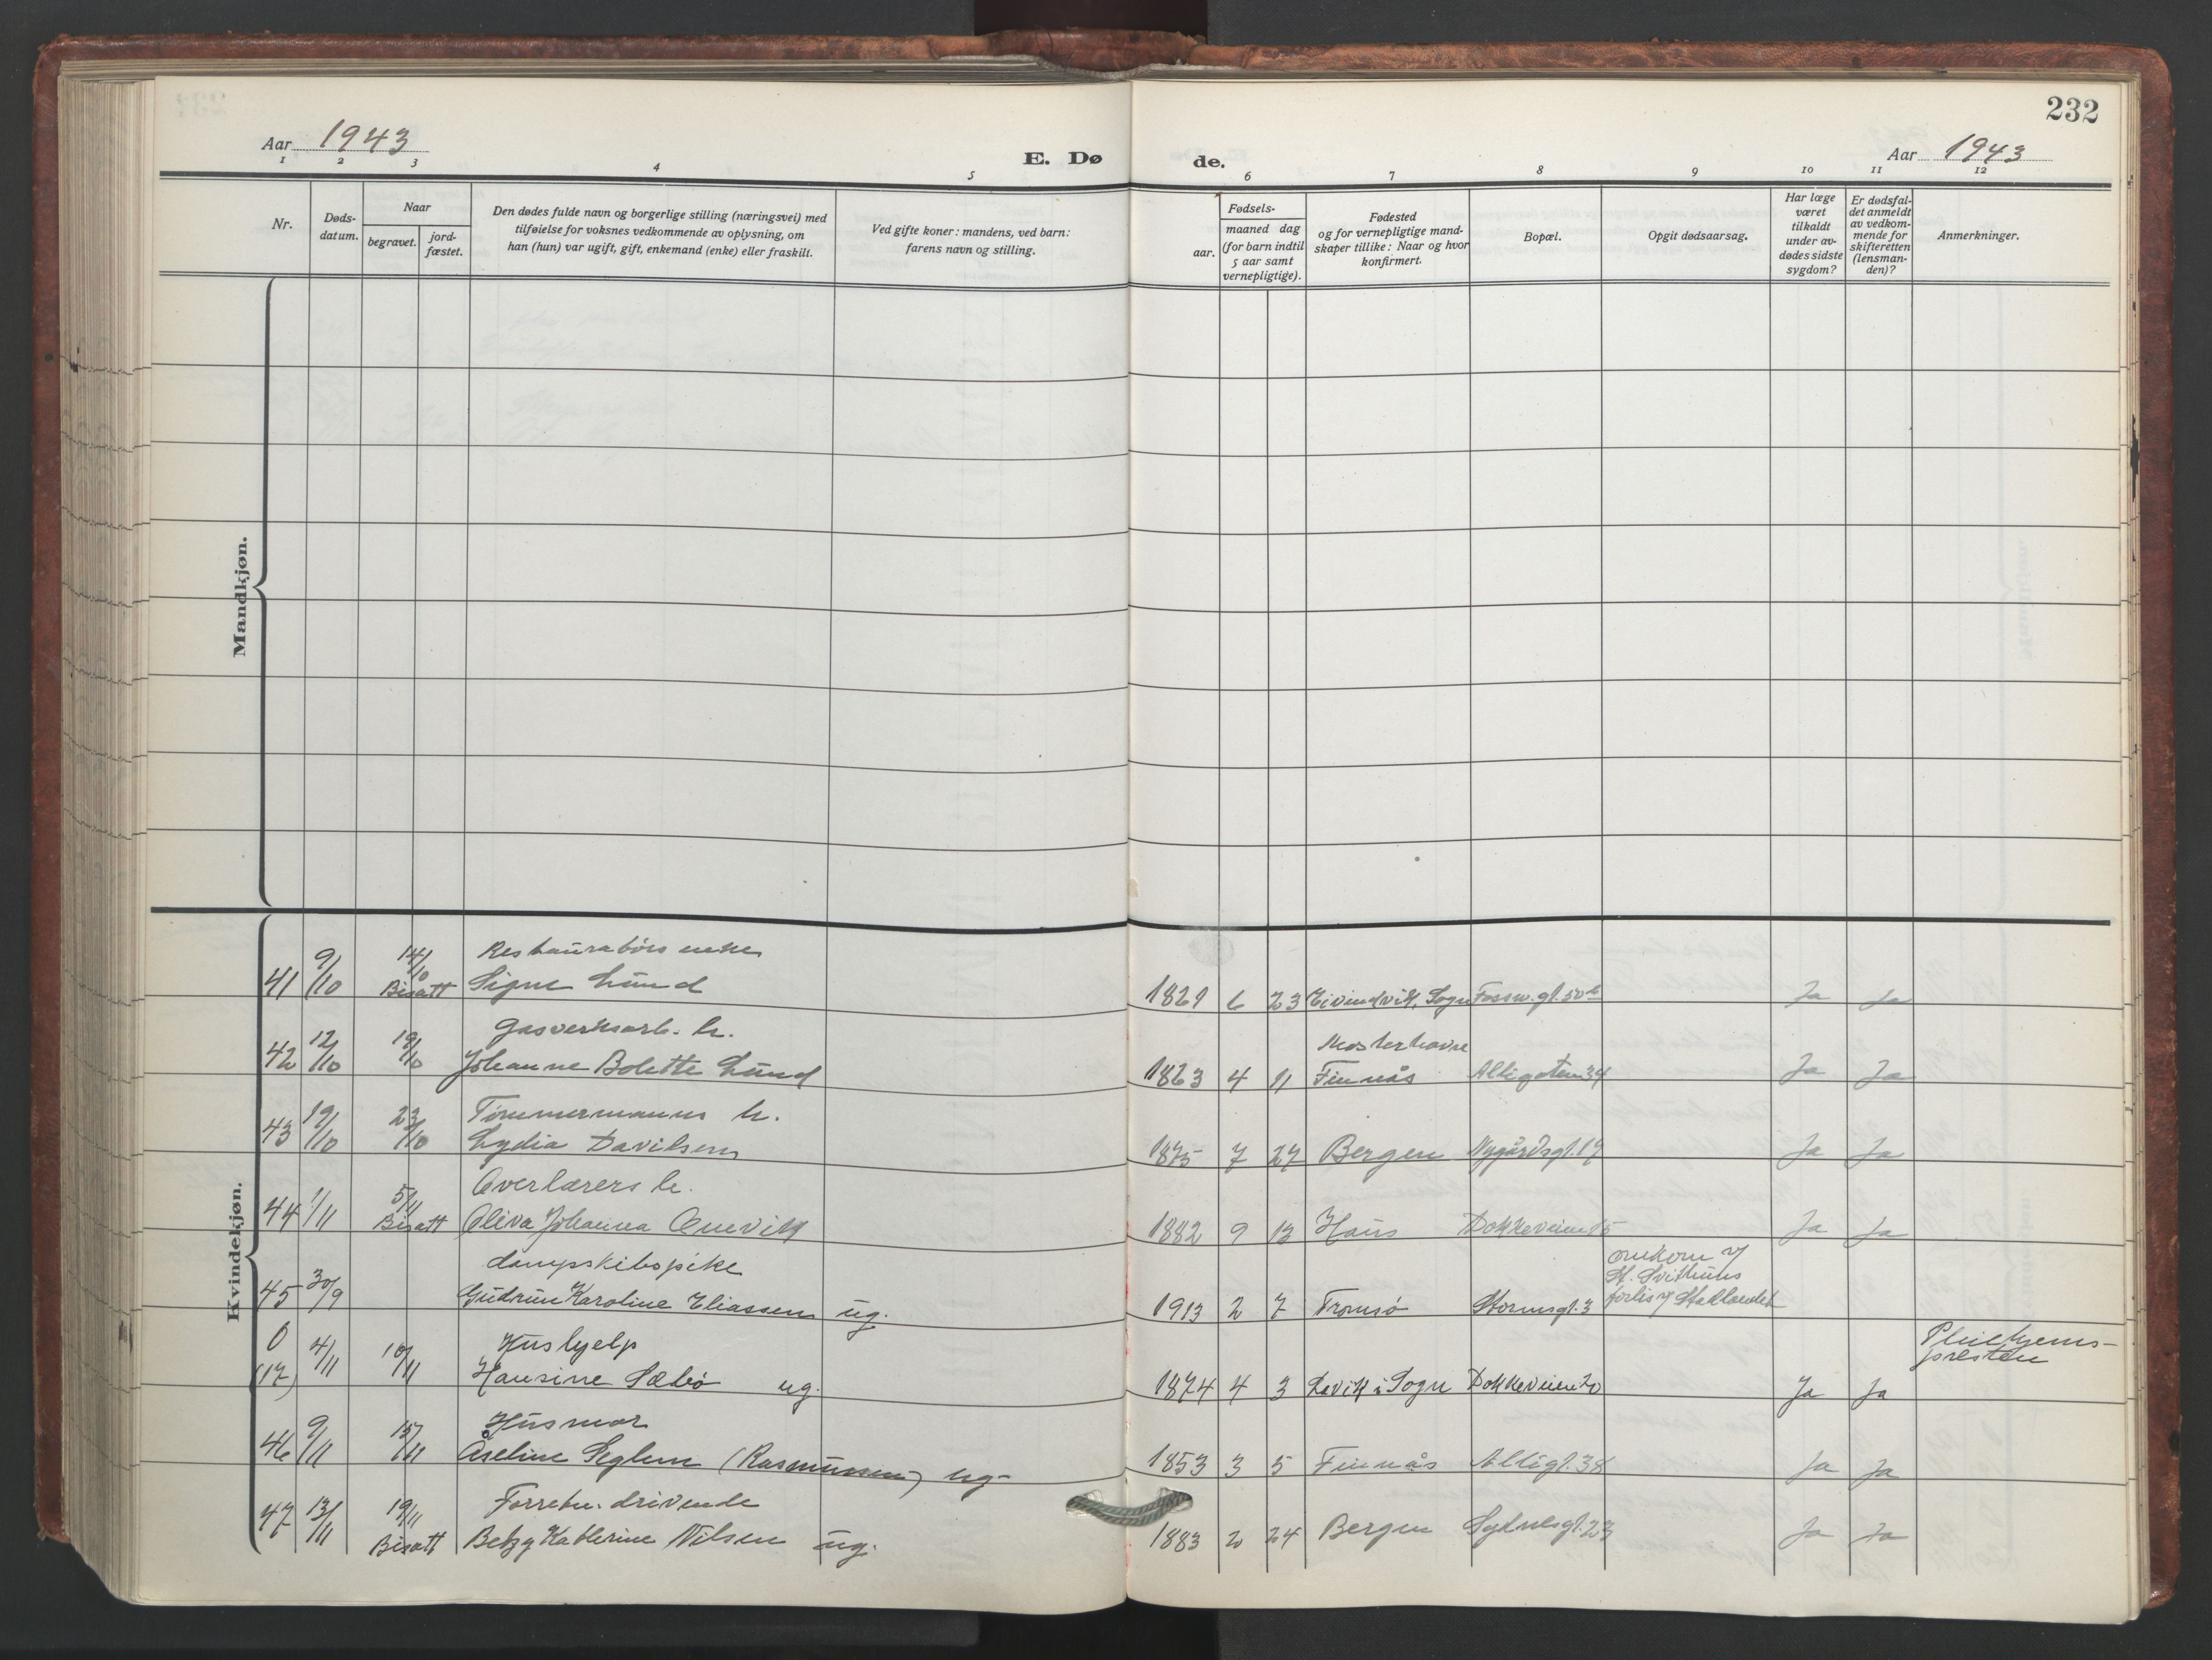 232
Aar 1943
E. Dø
de.
Aar 1943
1 2 3 4 5 6 7 8 9 10 11 12
Nr.
Døds-
datum.
Naar
begravet.
jord-
fæstet.
Den dødes fulde navn og borgerlige stilling (næringsvei) med
tilføielse for voksnes vedkommende av oplysning, om
han (hun) var ugift, gift, enkemand (enke) eller fraskilt.
Ved gifte koner: mandens, ved barn:
farens navn og stilling.
Fødsels-
aar.
maaned dag
(for barn indtil
5 aar samt
vernepligtige).
Fødested
og for vernepligtige mand-
skaper tillike: Naar og hvor
konfirmert.
Bopæl.
Opgit dødsaarsag.
Har læge
været
tilkaldt
under av-
dødes sidste
sygdom?
Er dødsfal-
det anmeldt
av vedkom-
mende for
skifteretten
(lensman-
den)?
Anmerkninger.
Mandkjøn.
Kvindekjøn.
9/10 14/10 Restauratørs enke
41 Bisatt Signe Lund 6 23 Eivindvik, Sogn Ja Ja
12/10 19/10 Gasverksarb. h.
42 Johanne Bolette Lund 1863 4 11 Finnås Allégaten 34 Ja Ja
19/10 23/10 Tømmermanns h.
43 Lydia Davilsen 1875 7 27 Bergen Nygårdsgt. 19 Ja Ja
1/11 5/11 Overlærers h.
44 Bisatt Oliva Johanna 1882 9 13 Haus Dokkeveien 15 Ja Ja
30/9 dampskibspike omkom v/
St. Svithuns
45 Gudrun Karoline Eliassen ug. 1913 2 7 Tromsö Stormsgt. 3 forlis v/ Stadlandet
0 4/11 10/11 Hushjelp Pleiehjems-
presten
(17) Hansine Sæbø ug. 1874 4 3 Lavik i Sogn Dokkeveien 20 Ja Ja
9/11 15/11 Husmor
46 Åseline Seglem (Rasmussen) ug. 1853 3 5 Finnås Allégt. 38 Ja Ja
13/11 19/11 Forretn. drivende
47 Bisatt Betzy Katherine Nilsen ug. 1883 2 24 Bergen Sydnesgt. 23 Ja Ja